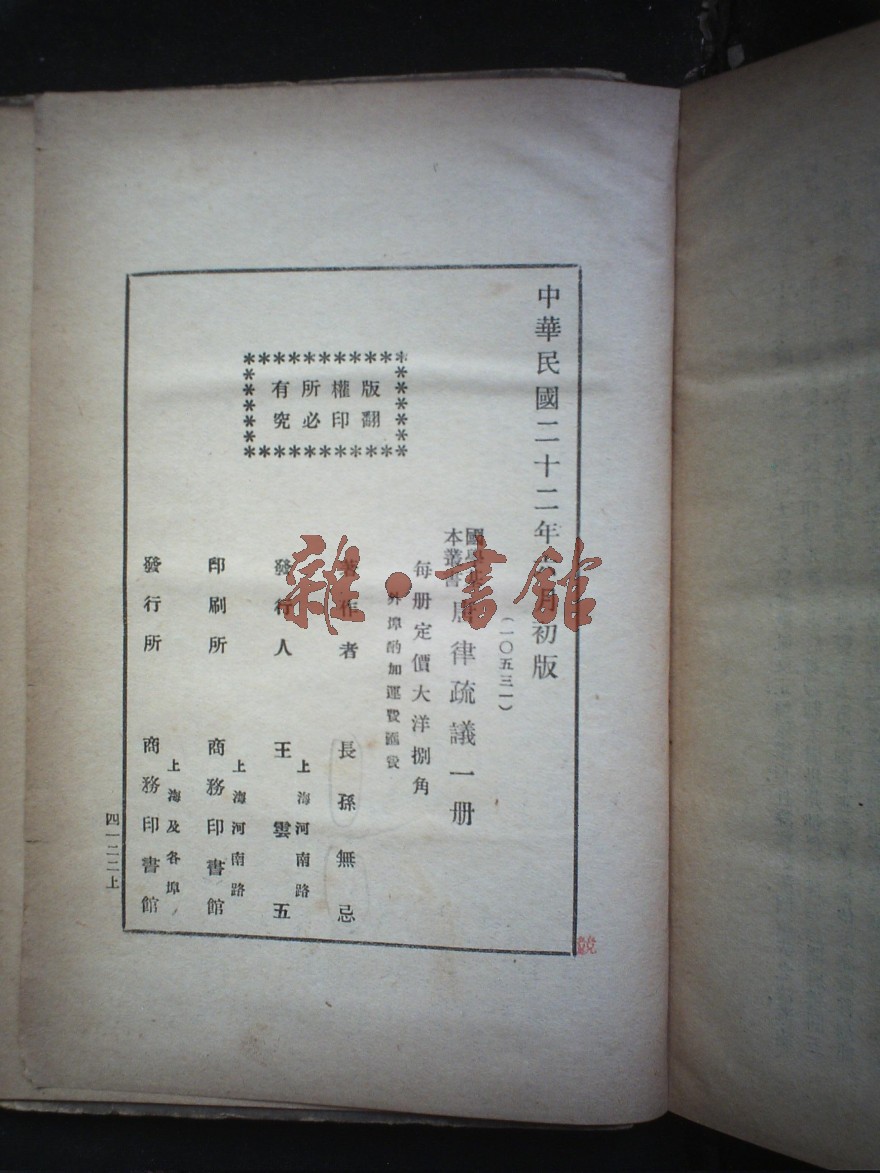 中華民國二十二年 月初版
(一〇五三一)
國學
本叢書
律疏議一册
每册定價大洋捌角
外埠酌加運費匯費
版權所有
翻印必究
著作者 長孫無忌
發行人 王雲五
上海河南路
印刷所 商務印書館
上海河南路
發行所 商務印書館
上海及各埠
四一二二上
競
雜·書館